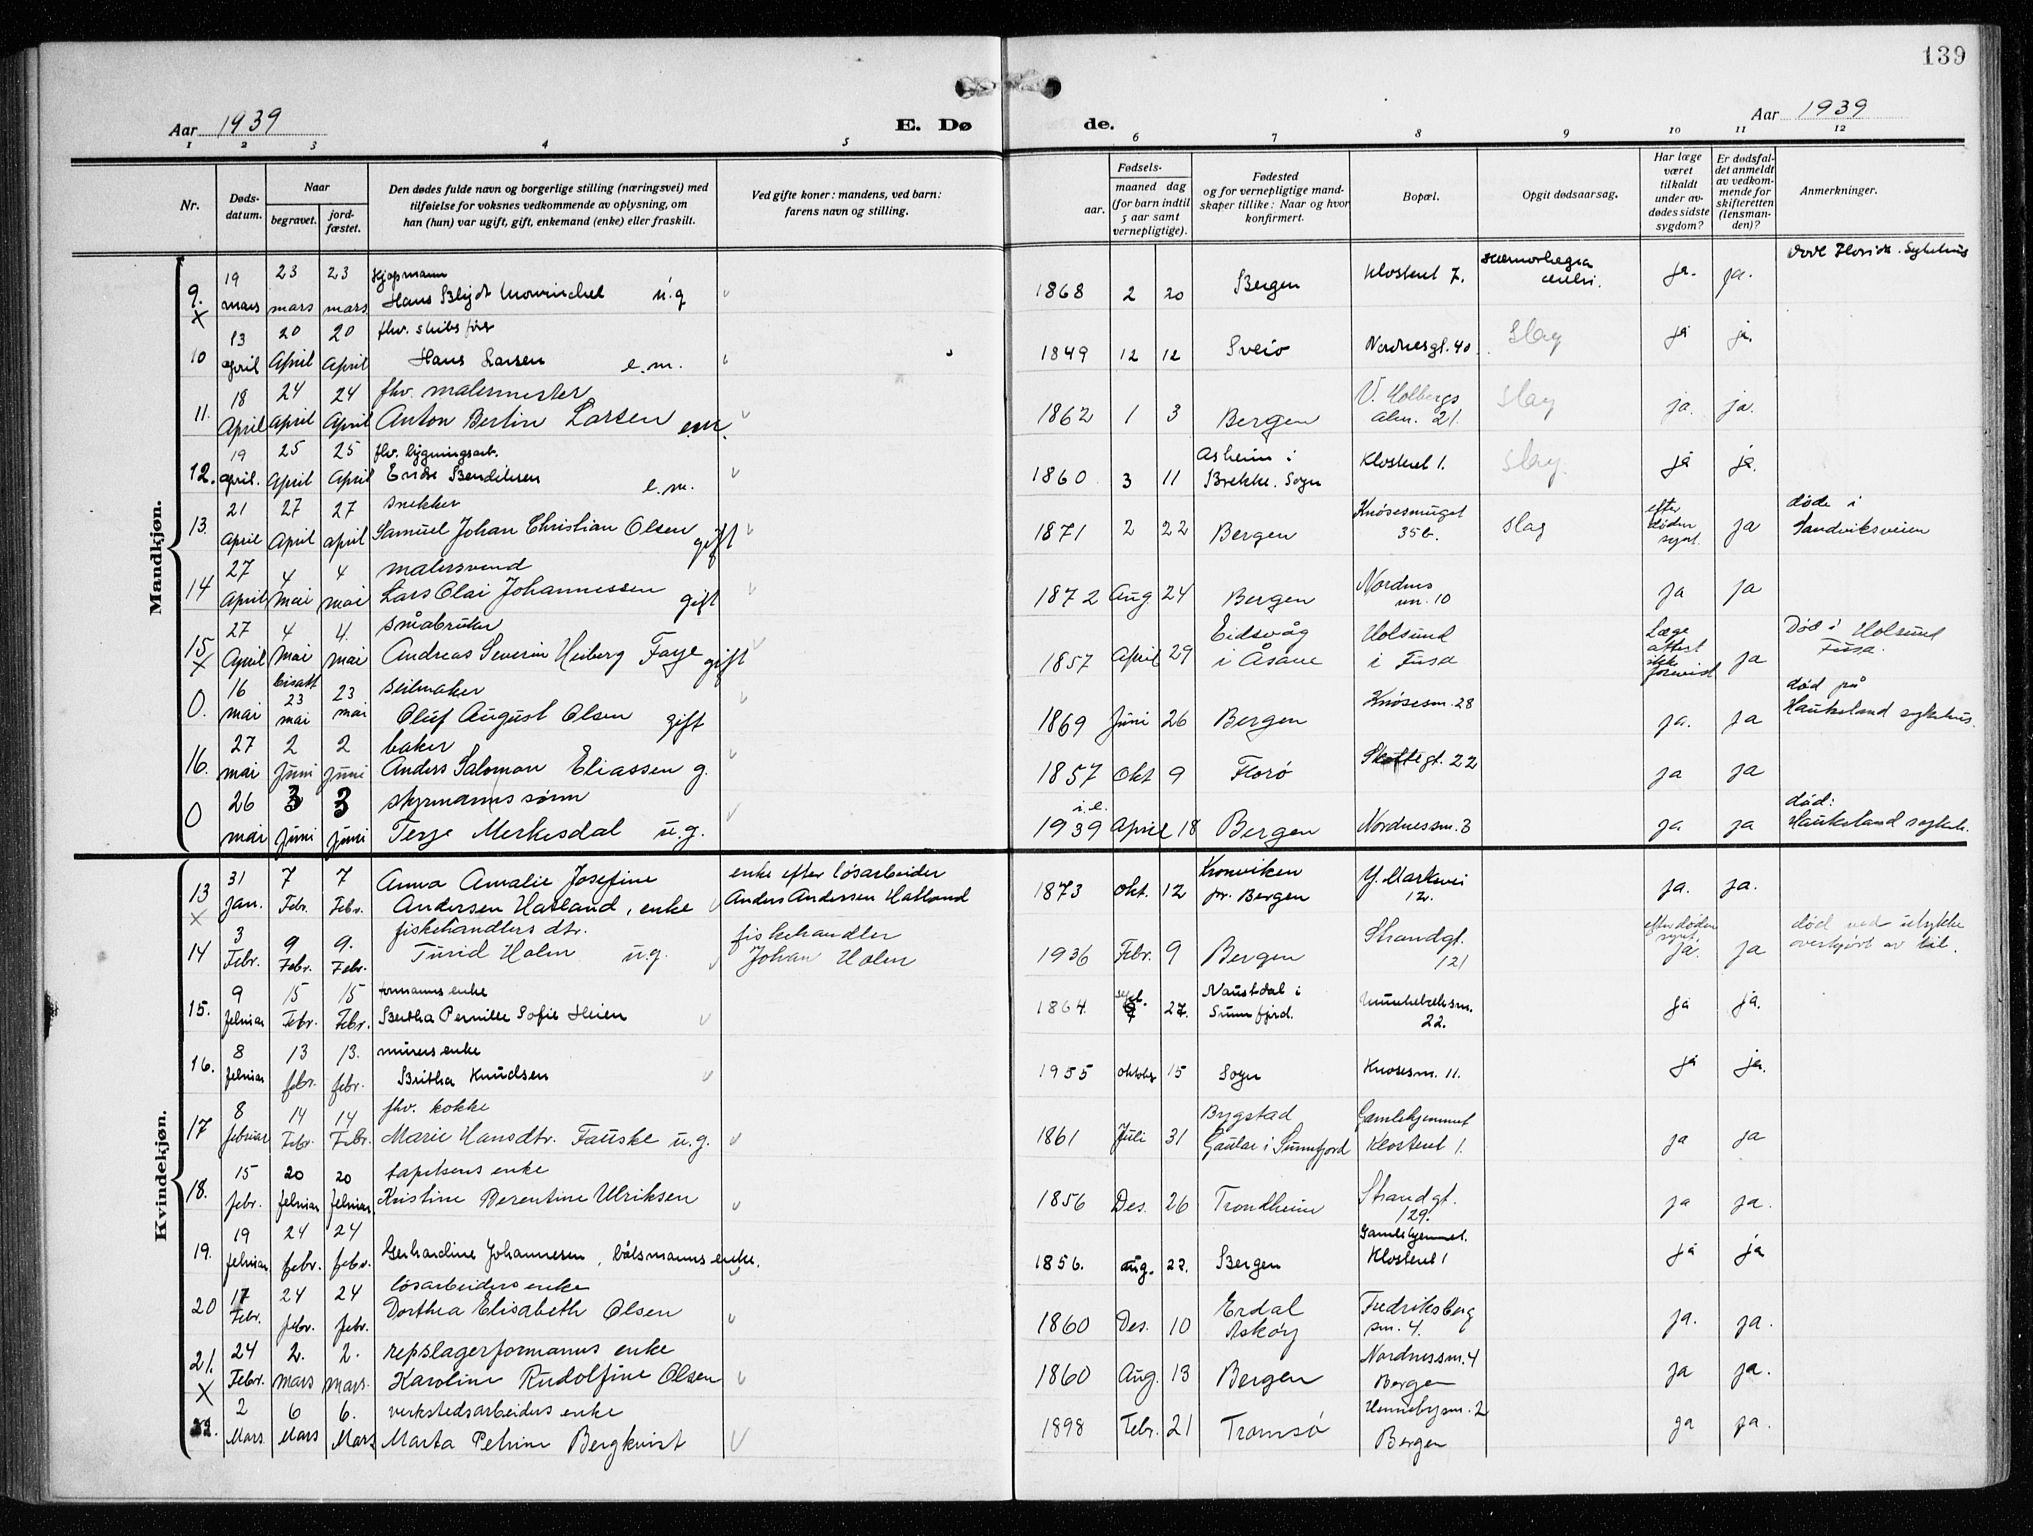 139
Aar 1939
E. Dø
de.
Aar 1939
1 2 3 4 5 6 7 8 9 10 11 12
Nr.
Døds-
datum.
Naar
begravet.
jord-
fæstet.
Den dødes fulde navn og borgerlige stilling (næringsvei) med
tilføielse for voksnes vedkommende av oplysning, om
han (hun) var ugift, gift, enkemand (enke) eller fraskilt.
Ved gifte koner: mandens, ved barn:
farens navn og stilling.
Fødsels-
aar.
maaned dag
(for barn indtil
5 aar samt
vernepligtige).
Fødested
og for vernepligtige mand-
skaper tillike: Naar og hvor
konfirmert.
Bopæl.
Opgit dødsaarsag.
Har læge
været
tilkaldt
under av-
dødes sidste
sygdom?
Er dødsfal-
det anmeldt
av vedkom-
mende for
skifteretten
(lensman-
den)?
Anmerkninger.
Mandkjøn.
19 23 23 Kjøpmann
9. mars mars mars Hans Blydt u.g 1868 2 20 Bergen Klosteret 7. ja. ja.
x
13 20 20 fhv. skibsfører
10 april April April Hans Larsen e.m. 1849 12 12 Sveio Nordnesgt. 40 Slag ja ja.
18 24 24 fhv. malermester V. Holbergs
11. April April April Anton Bertin Larsen em. 1862 1 3 Bergen Alm. 21. Slag ja. ja.
19 25 25 fhv. bygningsarb. i
12. april. April April Endre Bendiksen e.m. 1860 3 11 Brekke. Sogn Klosteret 1. Slag. ja ja.
21 27 27 snekker Knøsesmuget efter døde i
13. April April april Samuel Johan Christian Olsen gift 1871 2 22 Bergen 35b. slag døden synt. ja Sandviksveien
27 4 4 malersvend Nordnes
14 April mai mai Lars Olai Johannessen gift 1872 Aug 24 Bergen 10 ja ja
27 4 4. småbruker Eidsvåg Holsund Læge Død i Holsund
15 April mai mai Andreas Severin Heiberg Faye gift 1857 April 29 i Åsane i Fusa attest ikke ja Fusa.
x
16 bisatt 23 23 seilmaker Knøsesm. 28 død på
0. mai mai mai Oluf August Olsen gift 1869 Juni 26 Bergen ja. ja Haukeland sykehus.
27 2 2 baker
16. mai Juni juni Anders Salomon Eliassen g. 1857 Okt 9 Florø Skottegt. 22 ja ja
26 3 3 styrmanns sønn død:
0 mai Juni juni Terje Merkesdal u.g. 1939 April 18 Bergen Nordnessm. 3 ja ja Haukeland sykeh.
Kvindekjøn.
31 7 7 Anna Amalie Josefine enke efter løsarbeider
13 jan. Febr. Febr. Andersen Hatland, enke Anders Andersen Hatland 1873 okt. 12 pr. Bergen Y. Markevei 12. ja. ja.
x
3 9 9. fiskehandlers dtr. fiskehandler Strandgt. efter døden synt. død ved ulykke
14 Febr. Febr. Febr. Turid Holm u.g. Johan Holm 1936 Febr. 9 Bergen 121 Ja. ja overkjørt av bil.
9 15 15 formanns enke Naustdal i
15. februar Febr. Febr. Bertha Pernille Sofie Heien 1864 sept. 27. Sunnfjord. 22. ja ja.
8 13 13. murers enke
16. februar febr. febr. Britha Knudsen 1955 oktober 15 Sogn Knøsesm. 11. ja ja.
8 14 14 fhv. kokke Bygstad Gamlehjemmet
17 februar Febr. Febr. Marie Hansdtr. Fauske u.g. 1861 Juli 31 Gaular i Sunnfjord Klosteret 1. ja ja
15 20 20 tapetsers enke Strandgt.
18. febr. februar februar Kristine Berentine Ulriksen 1856 Des. 26 Trondheim 129. ja ja.
19 24 24 Gamlehjemmet.
19. februar febr. febr. Gerhardine Johannesen, båtsmanns enke. 1856. aug. 22. Bergen Klosteret 1 ja ja
17 24 24 løsarbeiders enke Erdal Fredriksberg
20 Febr. febr. febr. Dorthea Elisabeth Olsen 1860 Des. 10 Askøy sm. 4. ja. ja.
24 2. 2. repslagerformanns enke Nordnessm. 4
21. Febr. mars mars. Karoline Rudolfine Olsen 1860 Aug. 13 Bergen Bergen ja ja.
x
2 6 6. verkstedsarbeiders enke
22. Mars Mars Mars Marta Petrine Bergkvist 1898 Febr. 21 Tromsø Bergen ja ja.